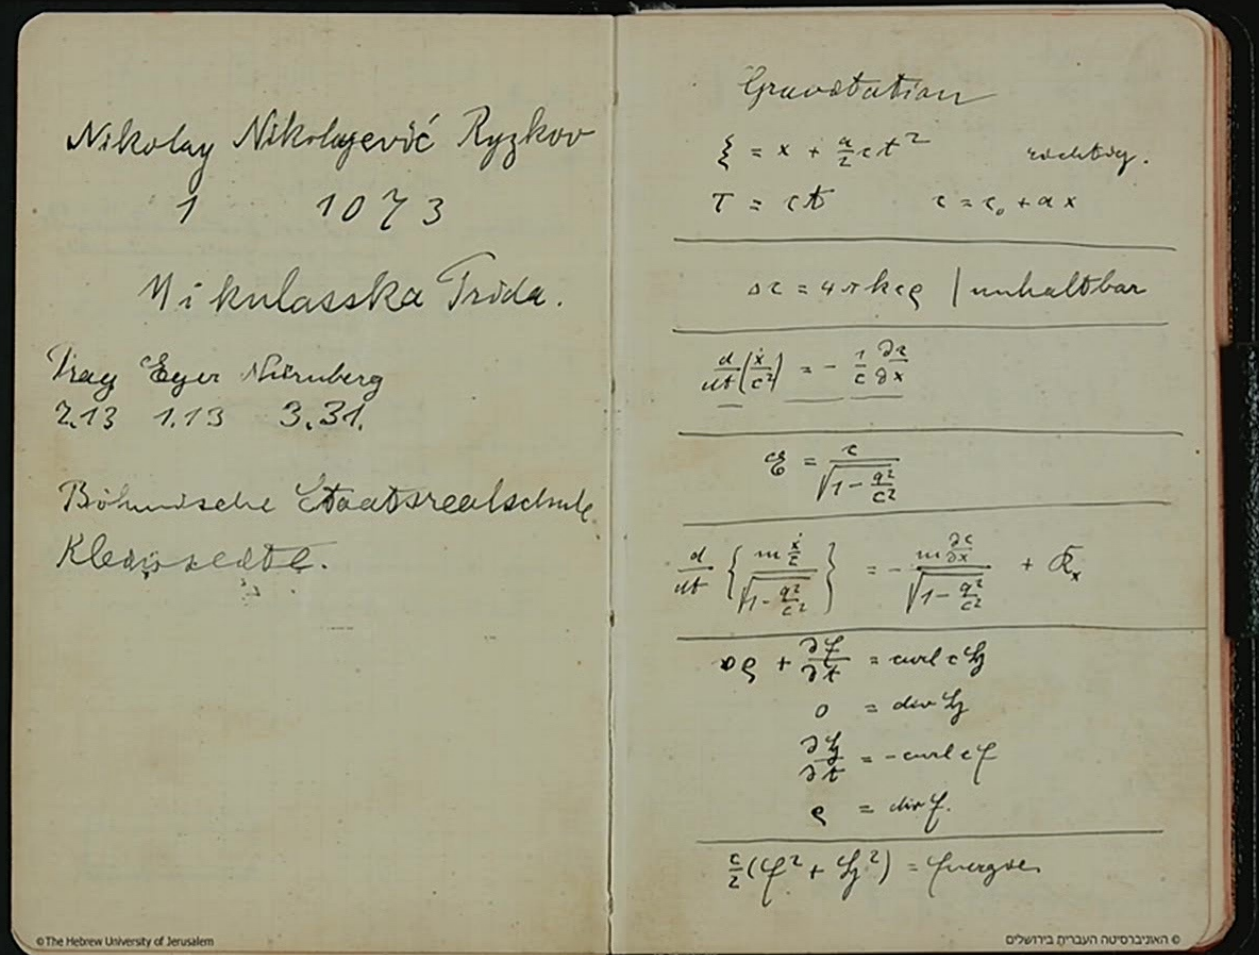 Nikolay Nikolajević Ryzkov
1 1073
Mikulasska Třída.
Prag Eger Nürnberg
2.13 1.13 3.31.
Böhmische Staatsrealschule
Gravitation
ξ = x + a/2 c t² richtig.
τ = ct c = c₀ + ax
Δc = 4πkcρ | unhaltbar
d/dt (ẋ/c²) = − 1/c ∂c/∂x
𝔈 = c/√(1 − q²/c²)
d/dt { m ẋ/c / √(1 − q²/c²) } = − m ∂c/∂x / √(1 − q²/c²) + 𝔎ₓ
𝔳ρ + ∂𝔈/∂t = curl c ℌ
0 = div ℌ
∂ℌ/∂t = − curl c 𝔈
ρ = div 𝔈.
c/2 (𝔈² + ℌ²) = Energie
© The Hebrew University of Jerusalem
האוניברסיטה העברית בירושלים ©